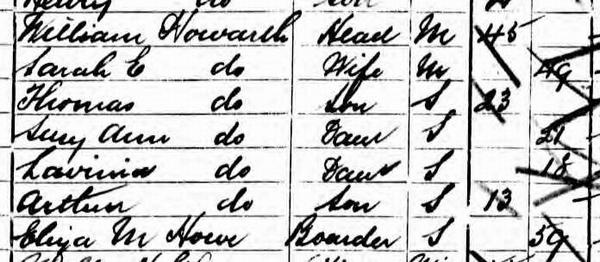 Henry do Son
William Howarth Head M 45
Sarah E do Wife M 49
Thomas do Son S 23
Lucy Ann do Daur S 21
Lavinia do Daur S 18
Arthur do Son S 13
Eliza M Howe Boarder S 59